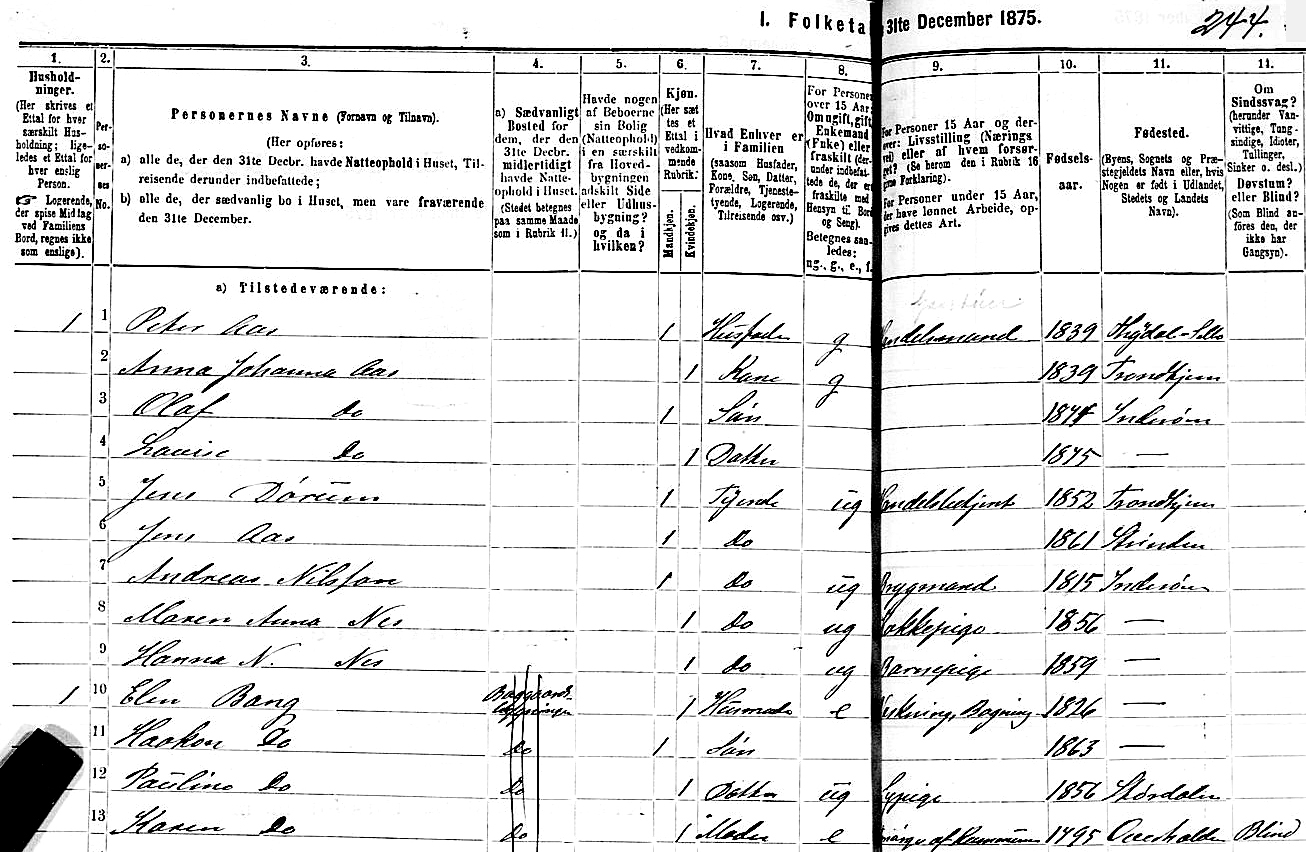 I. Folketa 31te December 1875.
244.
1. 2. 3. 4. 5. 6. 7. 8. 9. 10. 11. 11.
Hushold-
ninger.
(Her skrives et
Ettal for hver
særskilt Hus-
holdning; lige-
ledes et Ettal for
hver enslig
Person.
☞ Logerende,
der spise Middag
ved Familiens
Bord, regnes ikke
som enslige).
Per-
so-
ner-
nes
No.
Personernes Navne (Fornavn og Tilnavn).
(Her opføres:
a) alle de, der den 31te Decbr. havde Natteophold i Huset, Til-
reisende derunder indbefattede;
b) alle de, der sædvanlig bo i Huset, men vare fraværende
den 31te December.
a) Sædvanligt
Bosted for
dem, der den
31te Decbr.
midlertidigt
havde Natte-
ophold i Huset.
(Stedet betegnes
paa samme Maade
som i Rubrik 11.)
Havde nogen
af Beboerne
sin Bolig
(Natteophold)
i en særskilt
fra Hoved-
bygningen
adskilt Side
eller Udhus-
bygning?
og da i
hvilken?
Kjøn.
(Her sæt
tes et
Ettal i
vedkom-
mende
Rubrik.)
Mandkjøn.
Kvindekjøn.
Hvad Enhver er
i Familien
(saasom Husfader,
Kone, Søn, Datter,
Forældre, Tjeneste-
tyende, Logerende,
Tilreisende osv.)
For Personer
over 15 Aar:
Om ugift, gift,
Enkemand
(Enke) eller
fraskilt (der-
under indbefat-
tede de, der er
fraskilte med
Hensyn til Bord
og Seng).
Betegnes saa-
ledes:
ug., g., e., f.
For Personer 15 Aar og der-
over: Livsstilling (Nærings
vei) eller af hvem forsør-
get? (Se herom den i Rubrik 16
givne Forklaring).
For Personer under 15 Aar,
der have lønnet Arbeide, op-
gives dettes Art.
Fødsels-
aar.
Fødested.
(Byens, Sognets og Præ-
stegjeldets Navn eller, hvis
Nogen er født i Udlandet,
Stedets og Landets
Navn).
Om
Sindssvag?
(herunder Van-
vittige, Tung-
sindige, Idioter,
Tullinger,
Sinker o. desl.)
Døvstum?
eller Blind?
(Som Blind an-
føres den, der
ikke har
Gangsyn).
a) Tilstedeværende:
1 1 Peter Aas 1 Husfader g Handelsmand 1839
2 Anna Johanna Aas 1 Kone g 1839 Trondhjem
3 Olaf Do 1 Søn 1874 Inderøen
4 Lovise Do 1 Datter 1875 —
5 Jens Dørum 1 Tyende ug Handelsbetjent 1852 Trondhjem
6 Jens Aas 1 Do 1861 Strinden
7 Andreas Nilsson 1 Do ug Brygmand 1815 Inderøen
8 Maren Anna Nes 1 Do ug Kokkepige 1856 —
9 Hanna N. Nes 1 Do ug Barnepige 1859 —
1 10 Elen Bang Baggaards-
bygningen 1 Husmoder e Bagning 1826 —
11 Haakon Do Do 1 Søn 1863 —
12 Pauline Do Do 1 Datter ug Sypige 1856 Størdalen
13 Karen Do Do 1 Moder e 1795 Overhalden Blind